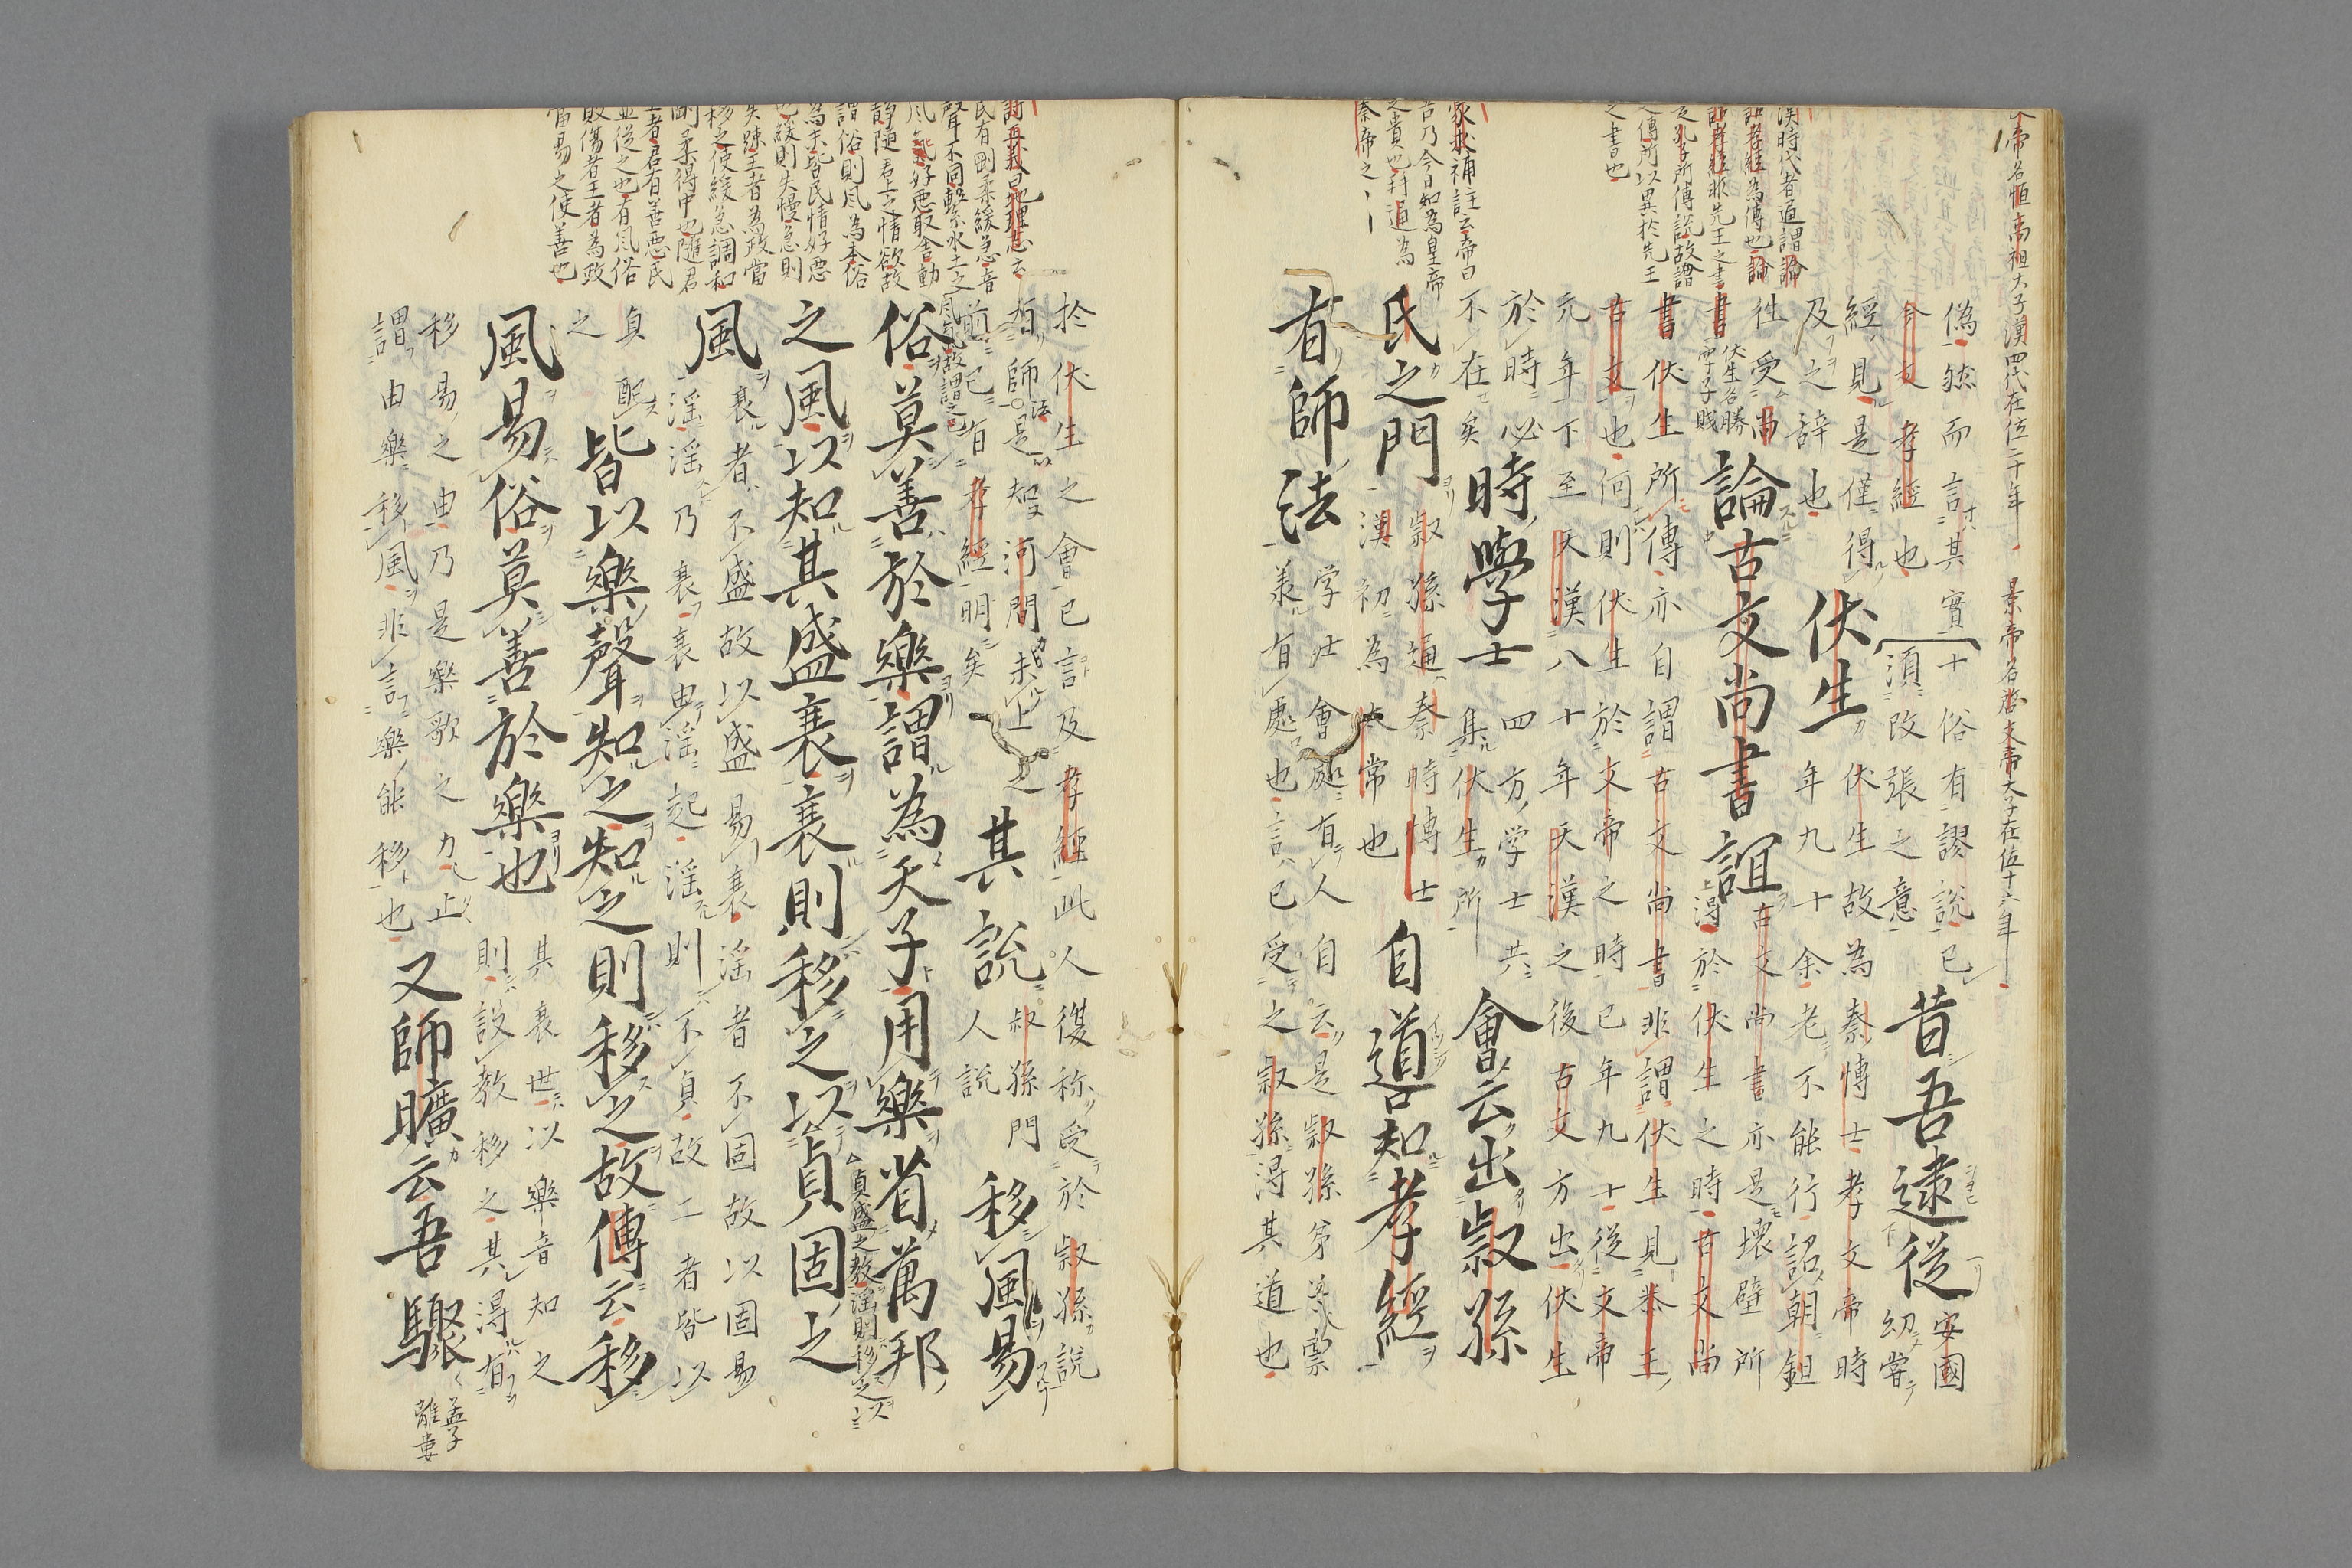 文帝名恒高祖太子漢四代在位二十年 景帝名啓文帝太子在位十六年
漢時代者通謂論
語孝經為傳也論
語孝經非先王之書
是孔子所傳説故謂
之傳所以異於先王
之書也
蒙求補註云帝曰
吾乃今日知為皇帝
之貴也拜通為
秦帝之
偽然而言其實十俗有謬説已
今文孝經也須改張之意昔吾逮從安國
經見是僅得
及之辞也伏生伏生故為秦博士孝文帝時
年九十余老不能行詔朝錯
幼嘗
往受尚書伏生名勝字子賤論古文尚書誼古文尚書亦是壊壁所
得於伏生之時古文尚
書伏生所傳亦自謂古文尚書非謂伏生見恭王
古文也何則伏生於文帝之時已年九十従文帝
元年下至天漢八十年天漢之後古文方出伏生
於時必
不在矣時學士四方学士共
集伏生所會云出叔孫
氏之門叔孫通秦時博士
漢初為太常也自道知孝經
有師法学士會処有人自云是叔孫弟
羕有處也言已受之叔孫得其道也
詩正義曰地理志云
民有剛柔緩急音
聲不同繫水土之
風氣故謂之風
好悪取舎動
静隨君上之情欲故
謂俗則風為本俗
為末皆民情好悪
也緩則失慢急則
失躁王者為政當
移之使緩急調和
剛柔得中也隨君
上者君有善悪民
並従之也有風俗
敗傷者王者為政
當易之使善也
於伏生之會已言及孝經此人復称受於叔孫説
有師法是知河間未上之
前已有孝經明矣其説叔孫門
人説移風易
俗莫善於樂謂為天子用樂省萬邦
之風以知其盛衰衰則移之以貞固之
貞盛之教淫則移之
風衰者不盛故以盛易衰淫者不固故以固易
淫淫乃衰衰由淫起淫則不貞故二者皆以
貞配
之皆以樂聲知之知之則移之故傳云移
風易俗莫善於樂也其衰世以樂音知之
則設教移之其得有
移易之由乃是樂歌之力止
謂由樂移風非言樂能移也又師曠云吾驟
孟子
離婁